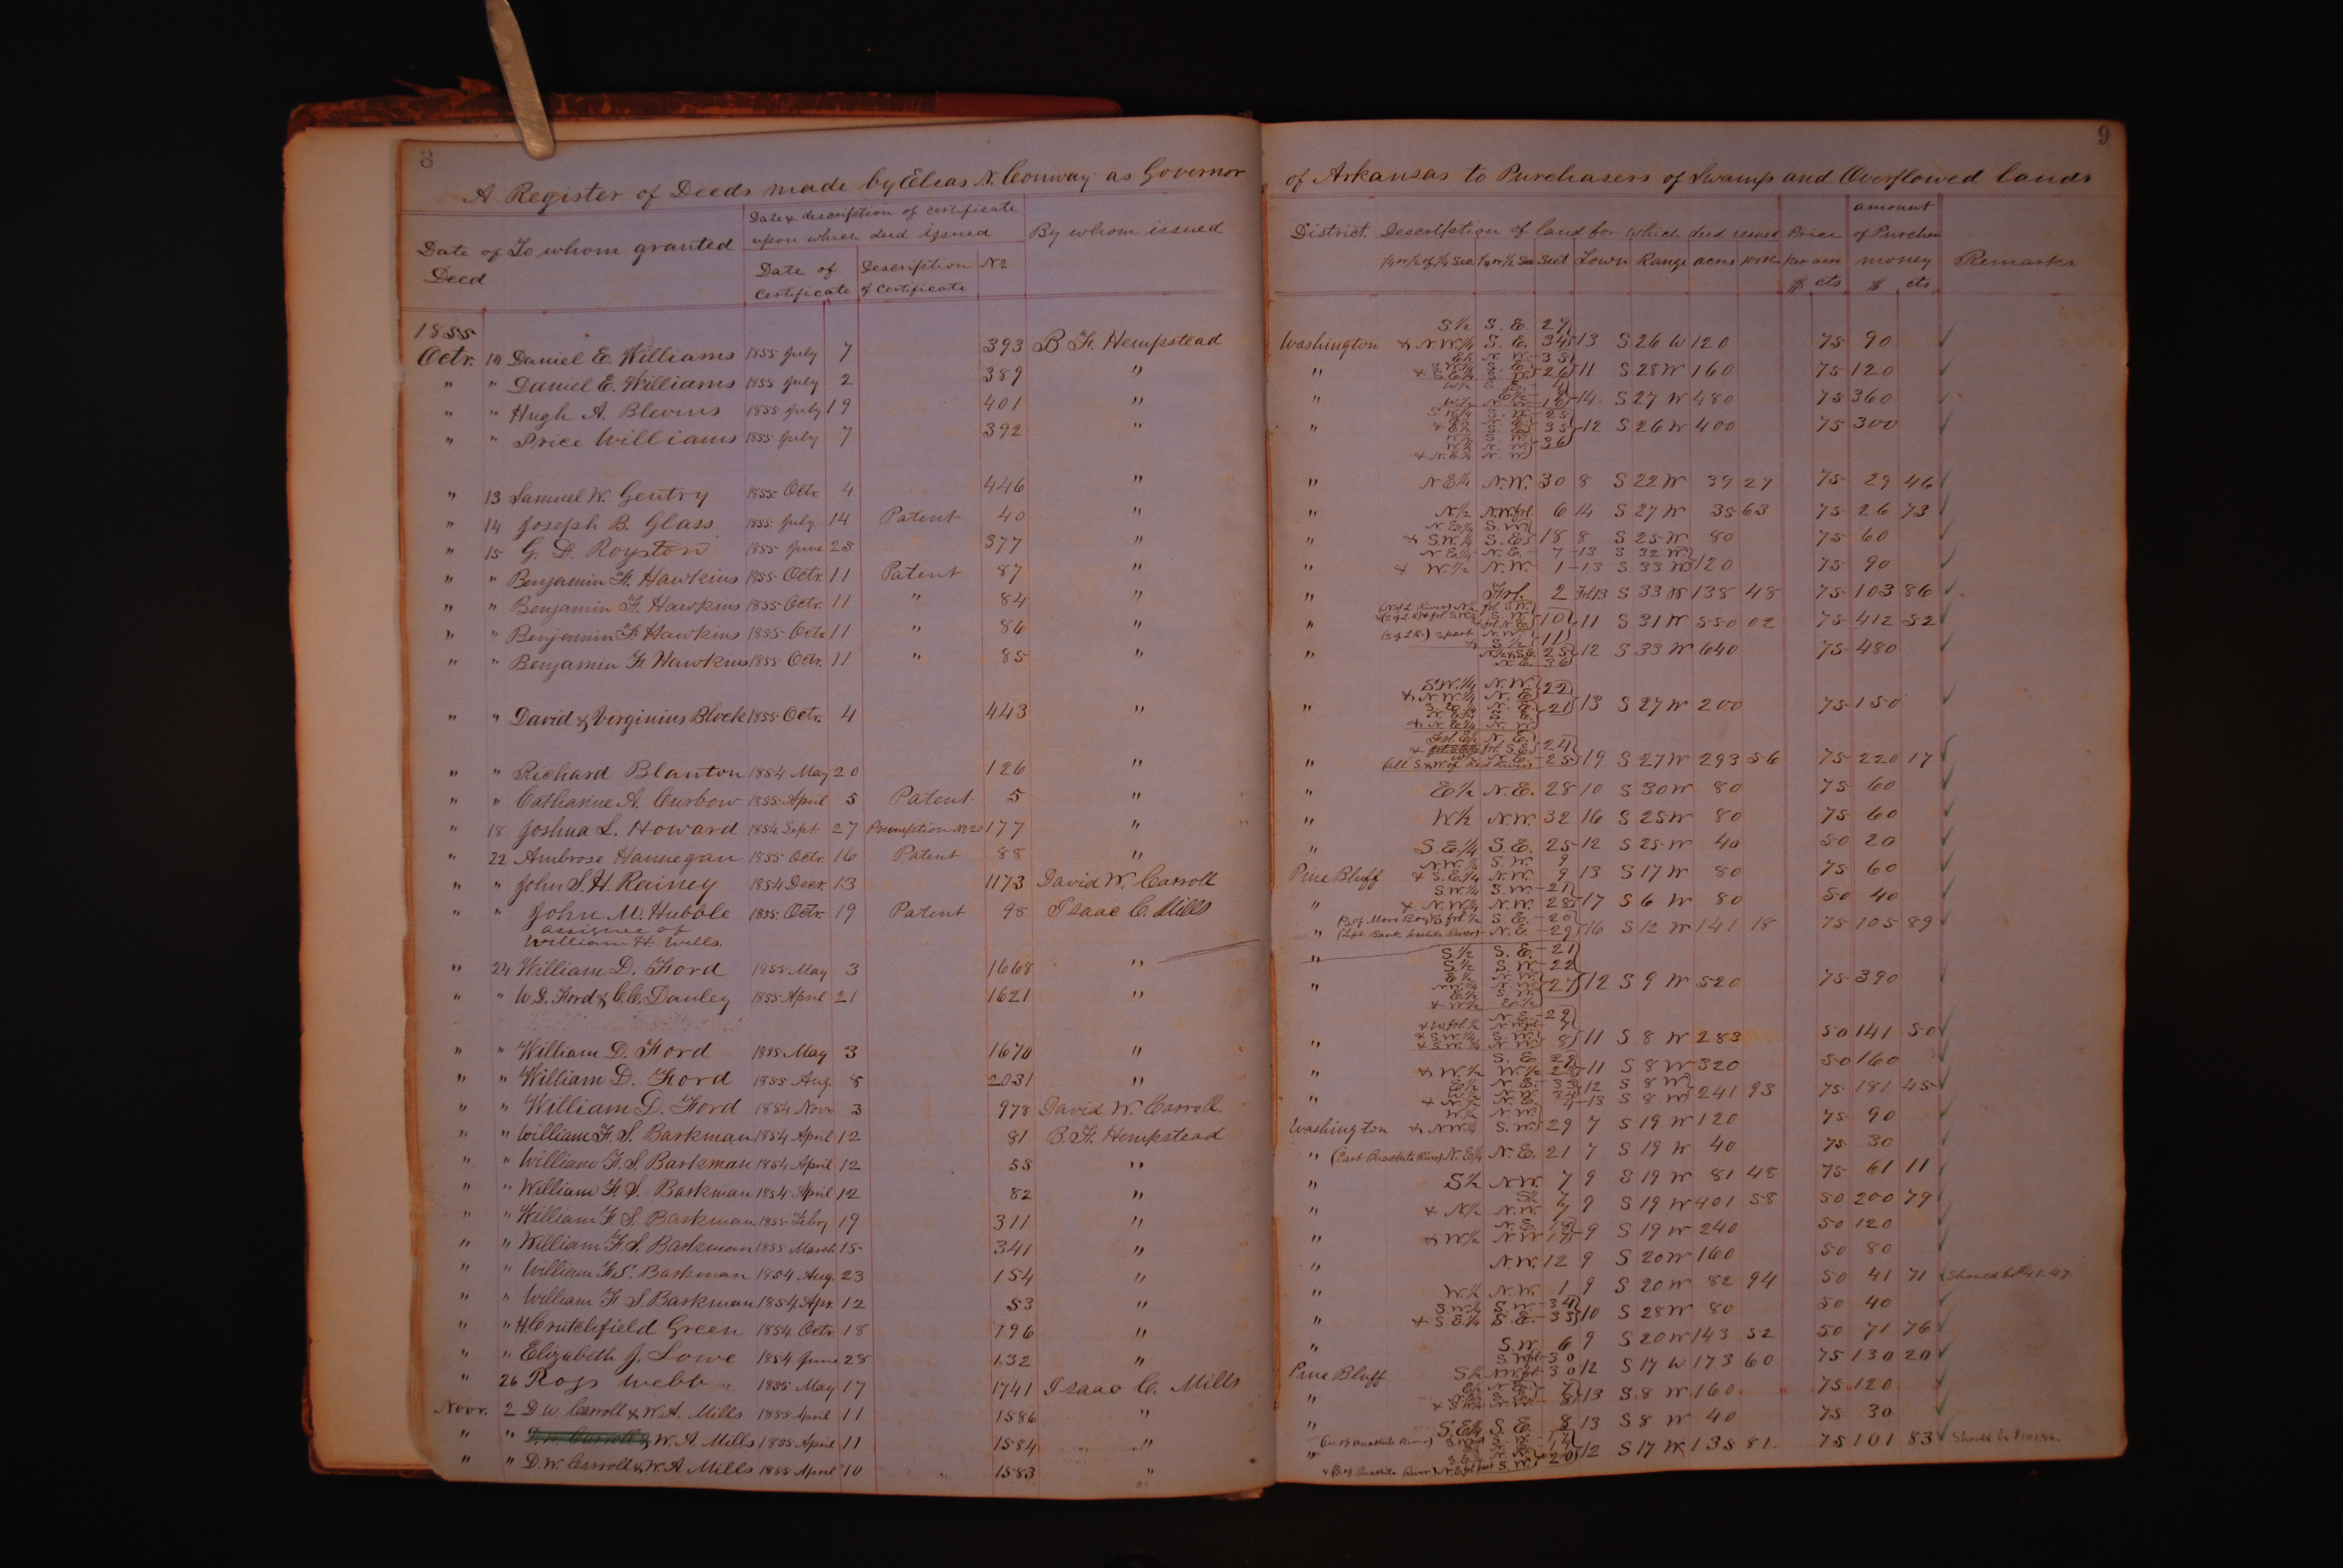 8
A Register of Deeds made by Elias N. Conway as Governor
Date of Deed
To whom granted
Date & description of certificate
upon which deed issued
Date of Certificate
Description of Certificate
No
By whom issued
1855
Octr. 10 Daniel E. Williams 1855 July 7 393 B. F. Hempstead
" " Daniel E. Williams 1855 July 2 389 "
" " Hugh A. Blevins 1855 July 19 401 "
" " Price Williams 1855 July 7 392 "
" 13 Samuel W. Gentry 1855 Octr. 4 446 "
" 14 Joseph B. Glass 1855 July 14 Patent 40 "
" 15 G. D. Royston 1855 June 25 377 "
" " Benjamin F. Hawkins 1855 Octr. 11 Patent 87 "
" " Benjamin F. Hawkins 1855 Octr. 11 " 84 "
" " Benjamin F. Hawkins 1855 Octr. 11 " 86 "
" " Benjamin F. Hawkins 1855 Octr. 11 " 85 "
" " David & Virginius Block 1855 Octr. 4 443 "
" " Richard Blanton 1854 May 20 126 "
" " Catharine A. Curbow 1855 April 5 Patent 5 "
" 18 Joshua L. Howard 1854 Sept 27 Preemption No 20 177 "
" 22 Ambrose Hannegan 1855 Octr. 16 Patent 88 "
" " John S. H. Rainey 1854 Decr. 13 1173 David W. Carroll
" " John M. Hubble 1855 Octr. 19 Patent 98 Isaac C. Mills
assignee of
William H. Wells.
" 24 William D. Ford 1955 May 3 1668 "
" " W. D. Ford & C. C. Danley 1855 April 21 1621 "
" " William D. Ford 1855 May 3 1670 "
" " William D. Ford 1855 Aug. 8 2031 "
" " William D. Ford 1854 Novr 3 978 David W. Carroll
" " William F. S. Barkman 1854 April 12 81 B. F. Hempstead
" " William F. S. Barkman 1854 April 12 55 "
" " William F. S. Barkman 1854 April 12 82 "
" " William F. S. Barkman 1855 Febry 19 311 "
" " William F. S. Barkman 1855 March 15 341 "
" " William F. S. Barkman 1854 Aug. 23 154 "
" " William F. S. Barkman 1854 Apr. 12 53 "
" " H. Crutchfield Green 1854 Octr. 18 196 "
" " Elizabeth J. Lowe 1854 June 28 132 "
" 26 Ross Webb 1855 May 17 1741 Isaac C. Mills
Novr. 2 D. W. Carroll & W. A. Mills 1855 April 11 1586 "
" " D. W. Carroll & W. A. Mills 1855 April 11 1584 "
" " D. W. Carroll & W. A. Mills 1855 April 10 1583 "
9
of Arkansas to Purchasers of Swamp and Overflowed lands
District.
Description of land for which deed issued
1/4 or 1/2 of 1/4 Sec. 1/4 or 1/2 Sec Sect Town Range acres 100ths
Price per acre
$ cts
amount of Purchase money
$ cts
Remarks
S 1/2 S. E. 29
Washington & N W 1/4 S. E. 34 13 S 26 W 120 75 90
" 26 11 S 28 W 160 75 120
" 14 S 27 W 480 75 360
" 12 S 26 W 400 75 300
" N E 1/4 N. W. 30 8 S 22 W 39 27 75 29 46
" N 1/2 N. W frl 6 14 S 27 W 35 63 75 26 73
N. E. 1/4 S. W.
" & S. W. 1/4 S. E. 18 8 S 25 W 80 75 60
N. E. 1/4 N. E. 7 13 S 32 W.
" & W. 1/2 N. W. 1 13 S 33 W 120 75 90
" Frl. 2 Frl 13 S 33 W 138 48 75 103 86
" 10 11 S 31 W 550 02 75 412 52
" 12 S 33 W 640 75 480
S. W. 1/4 N. W. 22
& N. W. 1/4 N. E.
" 21 13 S 27 W 200 75 150
Frl. E 1/2 N. E. 24
" (all S. W. of Red River) 25 19 S 27 W 293 56 75 220 17
" E 1/2 N. E. 28 10 S 30 W 80 75 60
" W 1/2 N. W. 32 16 S 25 W 80 75 60
" S. E. 1/4 S. E. 25 12 S 25 W 40 50 20
N. W. 1/4 S. W. 9
Pine Bluff & S. E. 1/4 N. W. 9 13 S 17 W 80 75 60
S. W. 1/4 S. W. 21
" & N. W. 1/4 N. W. 28 17 S 6 W 80 50 40
" N. E. 29 16 S 12 W 141 18 75 105 89
" S 1/2 S. E. 21
S 1/2 S. W. 22
" 27 12 S 9 W 520 75 390
N. E. 29
" 8 11 S 8 W 283 50 141 50
S. E. 29
" & W. 1/2 W. 1/2 28 11 S 8 W 320 50 160
E 1/2 N. E. 33 12 S 8 W
" 4 13 S 8 W 241 93 75 181 45
W 1/2 N. W.
Washington & N W 1/4 S. W. 29 7 S 19 W 120 75 90
" (East Ouachita River) N. E 1/4 N. E. 21 7 S 19 W 40 75 30
" S 1/2 N. W. 7 9 S 19 W 81 48 75 61 11
S 1/2 7
" & N 1/2 N. W. 7 9 S 19 W 401 58 50 200 79
N. E. 18
" & W 1/2 N. W 17 9 S 19 W 240 50 120
" N. W. 12 9 S 20 W 160 50 80
" W. 1/2 N. W. 1 9 S 20 W 82 94 50 41 71 Should be $41.47
S. W. 1/4 S. W. 34
" & S E. 1/4 S. E. 33 10 S 28 W 80 50 40
" S. W. 6 9 S 20 W 143 52 50 71 76
S. W frl 30
Pine Bluff S 1/2 N. W. frl 30 12 S 17 W 173 60 75 130 20
" 8 13 S 8 W 160 75 120
" S. E 1/4 S. E. 8 13 S 8 W 40 75 30
" 20 12 S 17 W 135 81 75 101 83 Should be $101.86